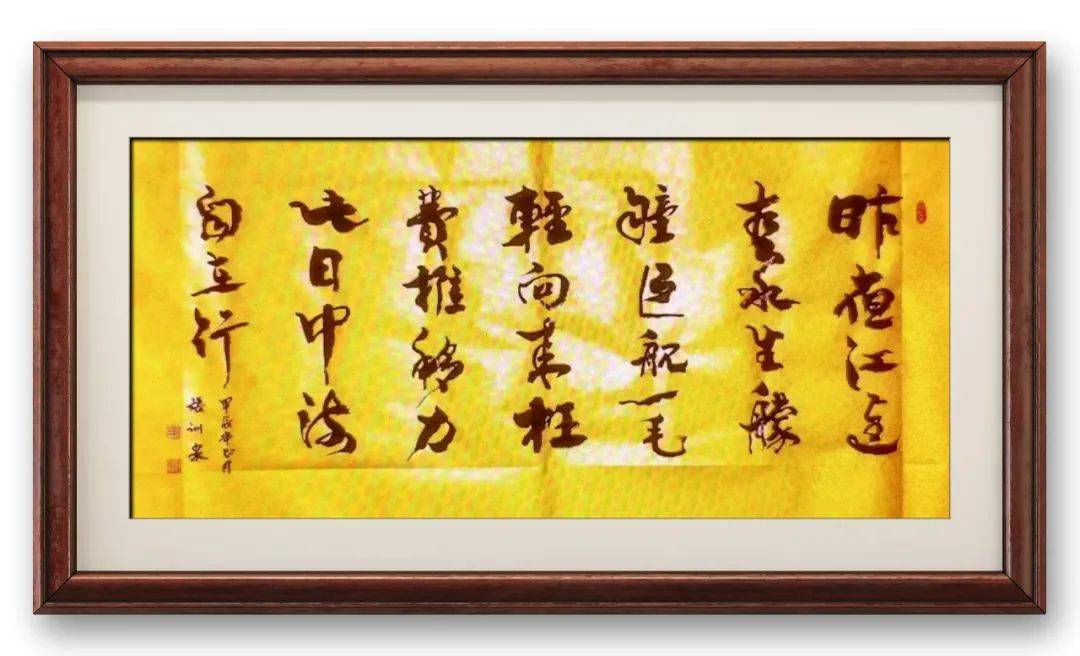 昨夜江边
春水生艨
艟巨舰一毛
輕向来枉
費推移力
此日中流
自在行
甲辰年月
训泉